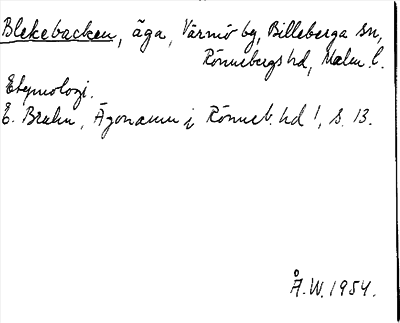 Blekebacken, äga, Värmö by, Billeberga sn,
Rönnebergs hd, Malm. l.
Etymologi.
E. Bruhn, Ägonamn i Rönneb. hd 1, s. 13.
Å.W. 1954.